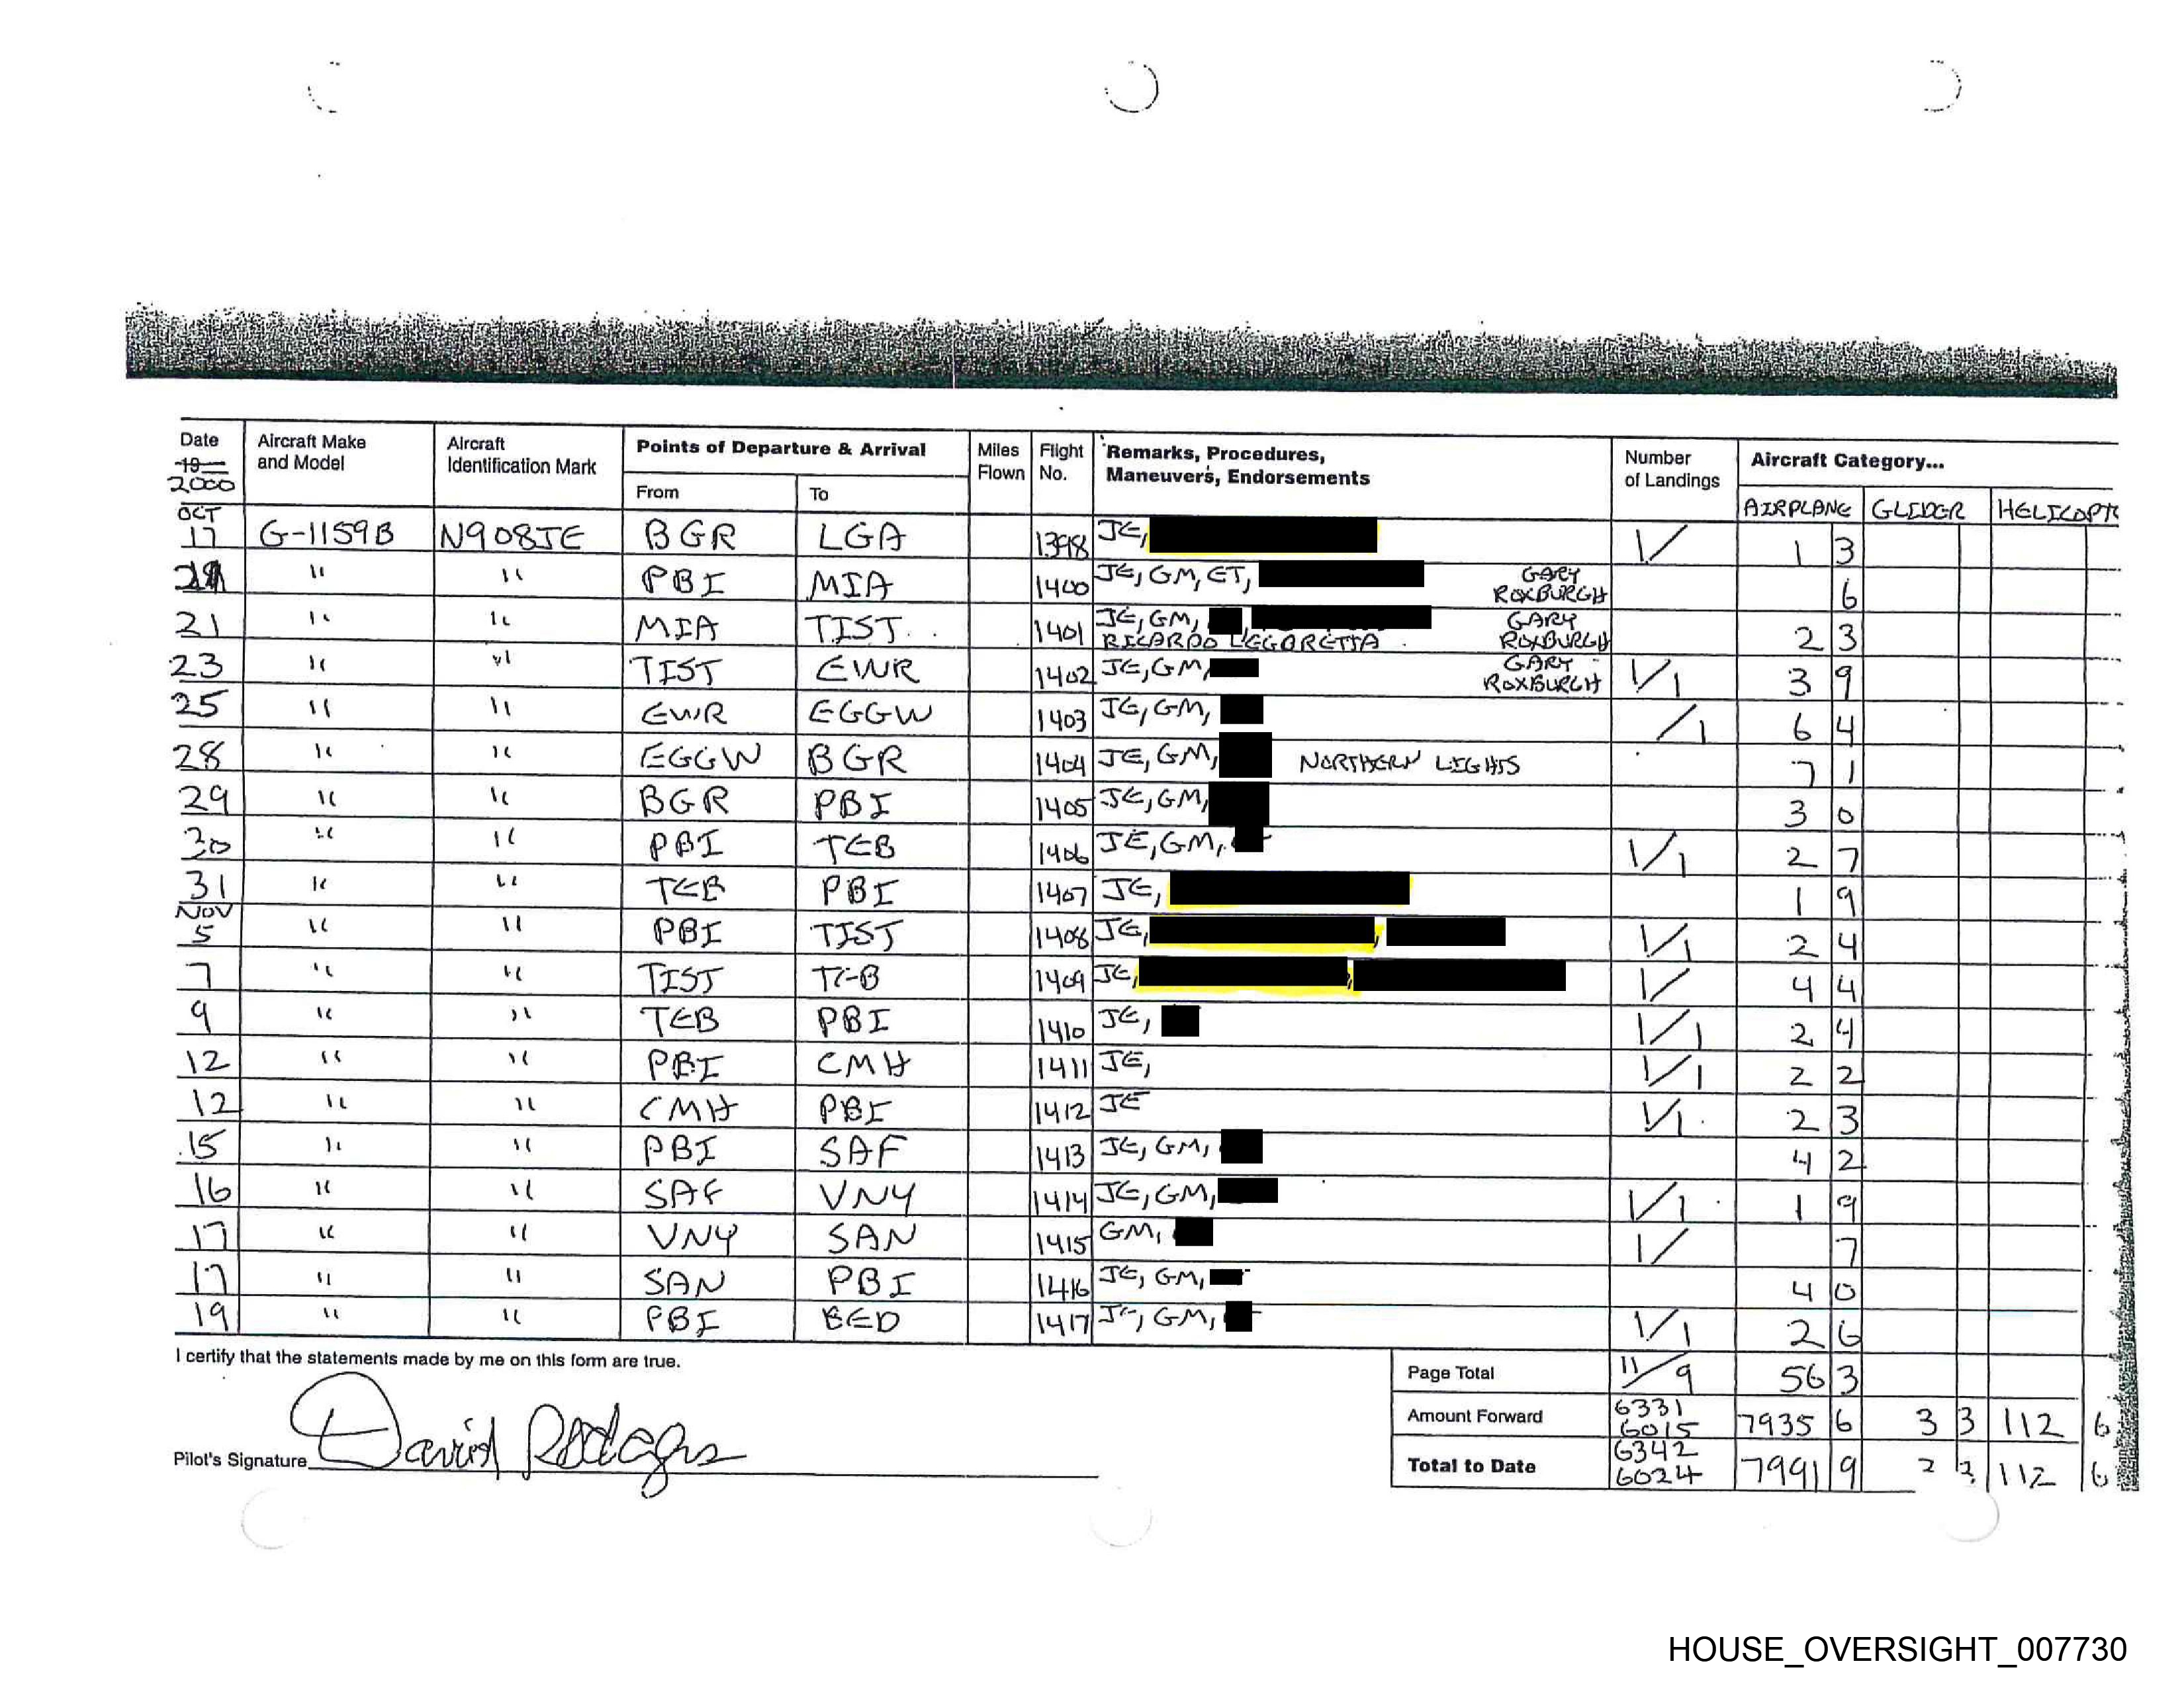 Date Aircraft Make and Model Aircraft Identification Mark Points of Departure & Arrival Miles Flown Flight No. Remarks, Procedures, Maneuvers, Endorsements Number of Landings Aircraft Category...
19 2000 From To AIRPLANE GLIDER HELICOPTR
OCT 17 G-1159B N908JE BGR LGA 1398 JE, 1/ 1 3
" " PBI MIA 1400 JE, GM, ET, GARY ROXBURGH 6
21 " " MIA TIST 1401 JE, GM, , RICARDO LEGORETTA GARY ROXBURGH 2 3
23 " " TIST EWR 1402 JE, GM, GARY ROXBURGH 1/1 3 9
25 " " EWR EGGW 1403 JE, GM, /1 6 4
28 " " EGGW BGR 1404 JE, GM, NORTHERN LIGHTS 7 1
29 " " BGR PBI 1405 JE, GM, 3 0
30 " " PBI TEB 1406 JE, GM, 1/1 2 7
31 " " TEB PBI 1407 JE, 1 9
NOV 5 " " PBI TIST 1408 JE, , 1/1 2 4
7 " " TIST TEB 1409 JE, , 1/ 4 4
9 " " TEB PBI 1410 JE, 1/1 2 4
12 " " PBI CMH 1411 JE, 1/1 2 2
12 " " CMH PBI 1412 JE 1/1 2 3
15 " " PBI SAF 1413 JE, GM, 4 2
16 " " SAF VNY 1414 JE, GM, 1/1 1 9
17 " " VNY SAN 1415 GM, 1/ 7
17 " " SAN PBI 1416 JE, GM, 4 0
19 " " PBI BED 1417 JE, GM, 1/1 2 6
I certify that the statements made by me on this form are true.
Page Total 11/9 56 3
Amount Forward 6331 6015 7935 6 3 3 112 6
Pilot's Signature David Rodgers
Total to Date 6342 6024 7991 9 112 6
HOUSE_OVERSIGHT_007730